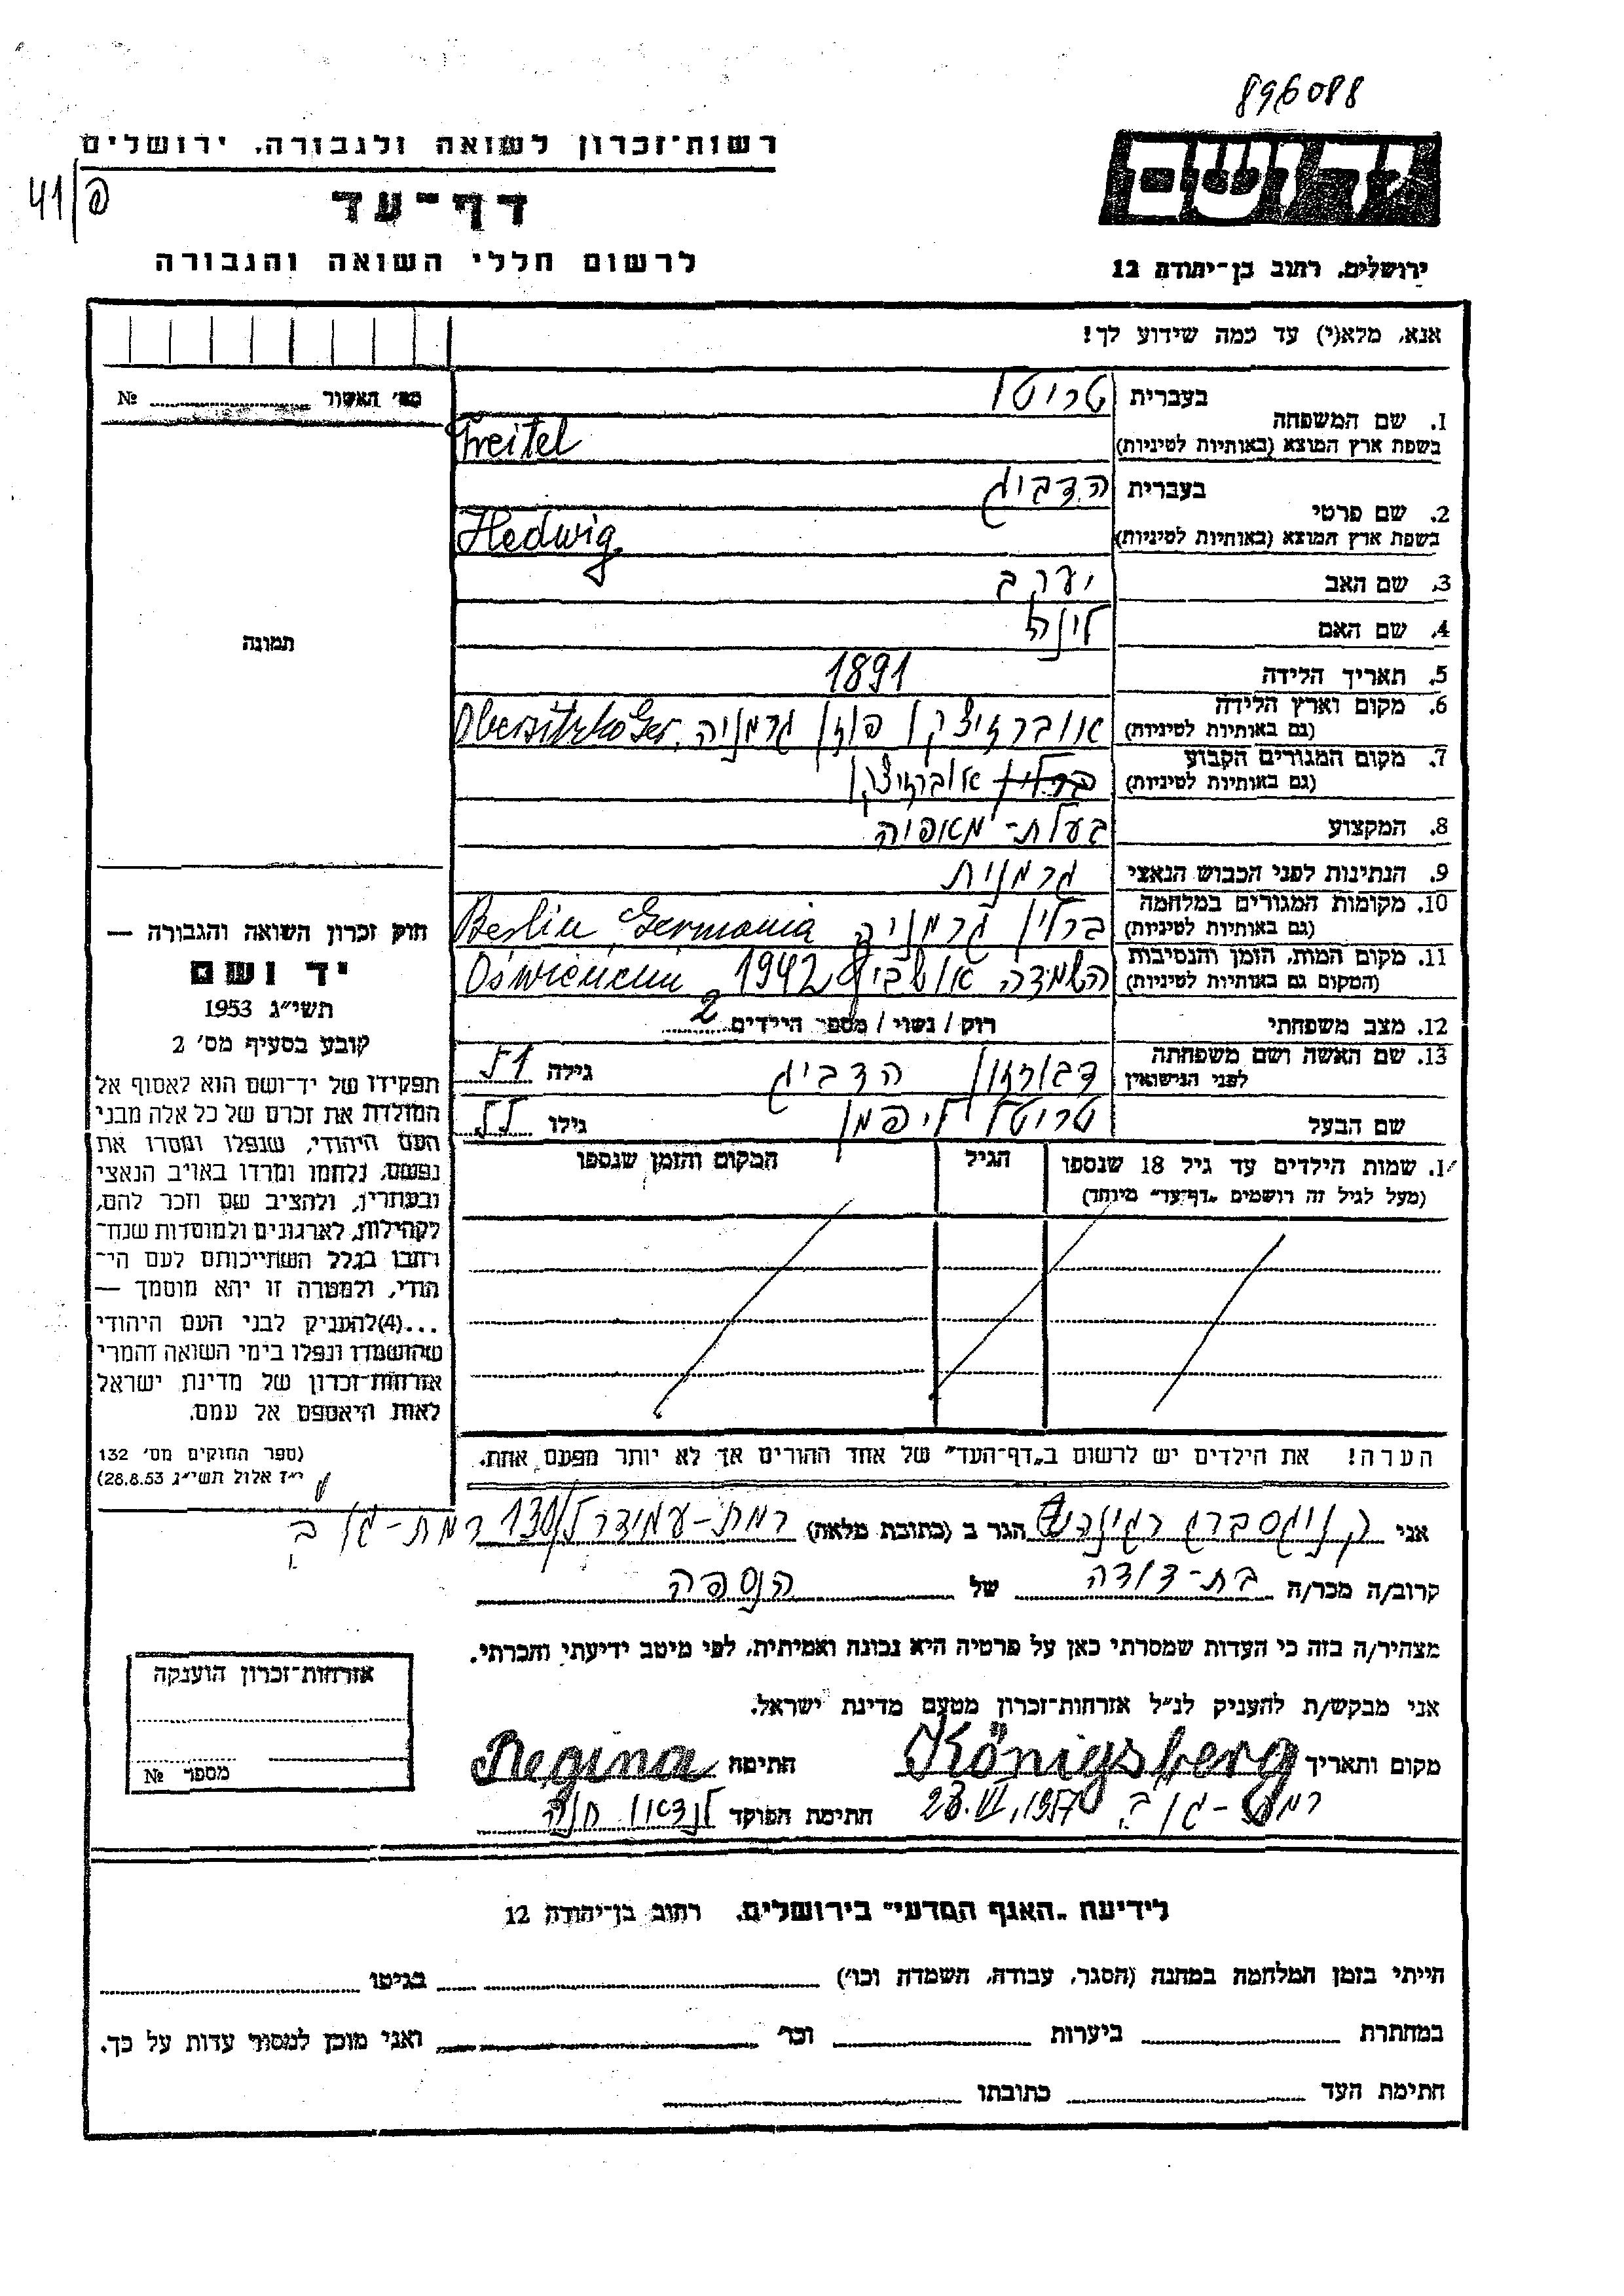 896088
רשות־זכרון לשואה ולגבורה, ירושלים
41/פ
דף־עד
לרשום חללי השואה והגבורה
יד ושם
ירושלים, רחוב בן־יהודה 12
אנא, מלא(י) עד כמה שידוע לך!
מס' האשור № 
1. שם המשפחה
בעברית טרייטל
בשפת ארץ המוצא (באותיות לטיניות) Treitel
2. שם פרטי
בעברית הדביג
בשפת ארץ המוצא (באותיות לטיניות) Hedwig
3. שם האב יעקב
4. שם האם לינה
5. תאריך הלידה 1891
6. מקום וארץ הלידה (גם באותיות לטיניות) אוברזיצקו פוזן גרמניה, Obersitzko Ger.
7. מקום המגורים הקבוע (גם באותיות לטיניות) ברלין אוברזיצקו
8. המקצוע בעלת-מאפיה
9. הנתינות לפני הכבוש הנאצי גרמנית
10. מקומות המגורים במלחמה (גם באותיות לטיניות) ברלין גרמניה Berlin Germania
11. מקום המות, הזמן והנסיבות (המקום גם באותיות לטיניות) השמדה אושביץ 1942 Oświencim
12. מצב משפחתי רוק / נשוי / מספר הילדים 2
13. שם האשה ושם משפחתה לפני הנישואין דבורזון הדביג גילה 51
שם הבעל טרייטל ליפמן גילו 55
שמות הילדים עד גיל 18 שנספו (מעל לגיל זה רושמים „דף־עד" מיוחד)
הגיל
המקום והזמן שנספו
הערה! את הילדים יש לרשום ב„דף־העד" של אחד ההורים אך לא יותר מפעם אחת.
תמונה
חוק זכרון השואה והגבורה —
יד ושם
תשי"ג 1953
קובע בסעיף מס' 2
תפקידו של יד־ושם הוא לאסוף אל
המולדת את זכרם של כל אלה מבני
העם היהודי, שנפלו ומסרו את
נפשם, נלחמו ומרדו באויב הנאצי
ובעוזריו, ולהציב שם וזכר להם,
לקהילות, לארגונים ולמוסדות שנח־
רבו בגלל השתייכותם לעם הי־
הודי, ולמטרה זו יהא מוסמך —
...(4)להעניק לבני העם היהודי
שהושמדו ונפלו בימי השואה והמרי
אזרחות־זכרון של מדינת ישראל
לאות היאספם אל עמם.
(ספר החוקים מס' 132
י"ז אלול תשי"ג 28.8.53)
אני קניגסברג רגינה הגר ב (כתובת מלאה) רמת-עמידר 130/ רמת-גן ב
קרוב/ה מכר/ה בת-דודה של הנספה
מצהיר/ה בזה כי העדות שמסרתי כאן על פרטיה היא נכונה ואמיתית, לפי מיטב ידיעתי והכרתי.
אני מבקש/ת להעניק לנ"ל אזרחות־זכרון מטעם מדינת ישראל.
מקום ותאריך Königsberg חתימה Regina
רמת-גן ב 23.VI.1957 חתימת הפוקד לנדאו חנה
אזרחות־זכרון הוענקה
מספר №
לידיעת „האגף המדעי" בירושלים, רחוב בן־יהודה 12
הייתי בזמן המלחמה במחנה (הסגר, עבודה, השמדה וכו') בגיטו
במחתרת ביערות וכו' ואני מוכן למסור עדות על כך.
חתימת העד כתובתו